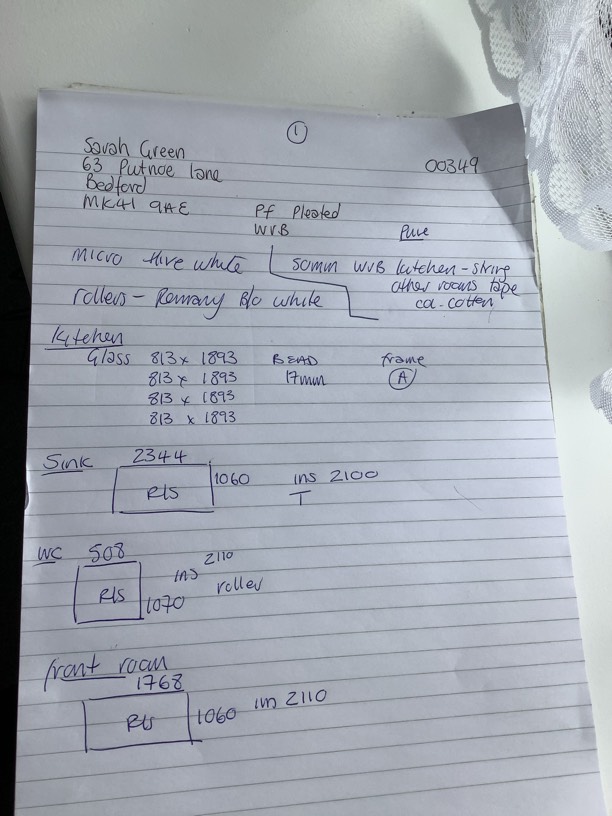 1
Sarah Green
63 Putnoe Lane
Bedford
MK41 9AE
00349
Pf Pleated
WVB
Pure
Micro Hive white
50mm WVB kitchen - string
other rooms tape
ca-cotten
rollers - B/o white
Kitchen
Glass 813 x 1893 BEAD frame
813 x 1893 17mm A
813 x 1893
813 x 1893
Sink 2344
R/S 1060 ins 2100
T
WC 508
R/S 1070 ins 2110
roller
front room
1768
R/S 1060 im 2110